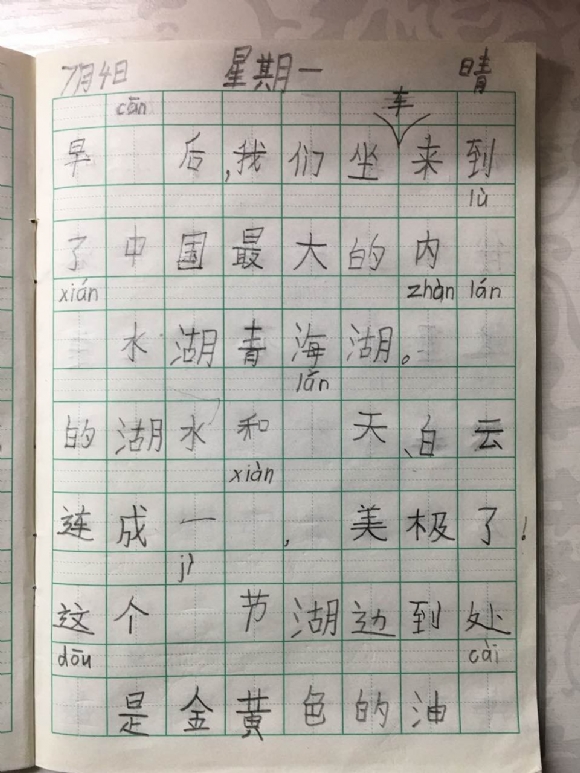 7月4日 星期一 晴
cān 车
早 后,我们坐来到
lù
了中国最大的内
xián zhàn lán
水湖青海湖。
lán
的湖水和 天、白云
xiàn
连成一 , 美极了!
jì
这个 节湖边到处
dōu cài
是金黄色的油